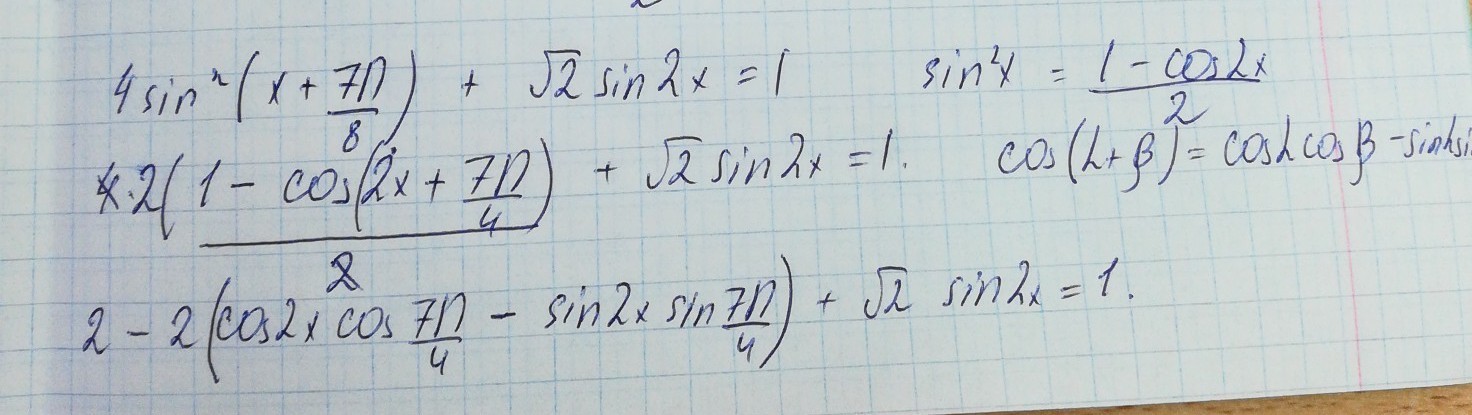 4 sin²(x + 7П/8) + √2 sin2x = 1 sin²x = (1 - cos2x)/2
4·2((1 - cos(2x + 7П/4))/2) + √2 sin2x = 1. cos(α+β) = cosα cosβ - sinα si
2 - 2(cos2x cos 7П/4 - sin2x sin 7П/4) + √2 sin2x = 1.